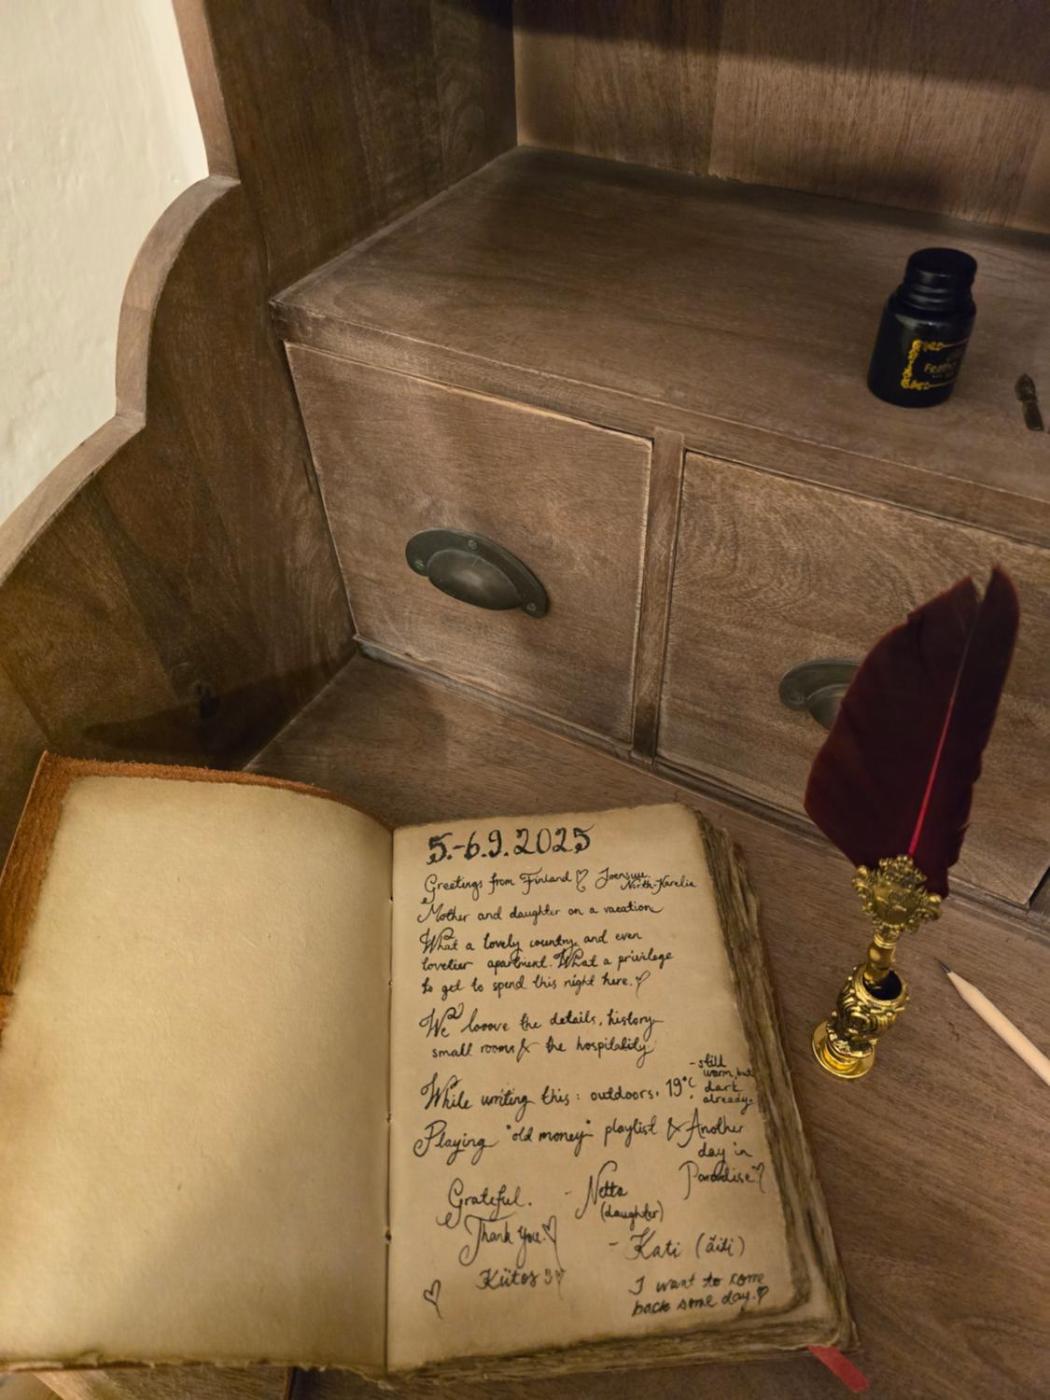 5.-6.9.2025
Greetings from Finland ♡ Joensuu,
North-Karelia
Mother and daughter on a vacation
What a lovely country, and even
lovelier apartment. What a privilege
to get to spend this night here. ♡
We looove the details, history
small rooms & the hospitality
While writing this: outdoors. 19°C
- still
warm, but
dark
already.
Playing "old money" playlist & Another
day in
Paradise ♡
Grateful.
Thank You! ♡
Kiitos ♡
- Netta
(daughter)
- Kati (äiti)
I want to come
back some day. ♡